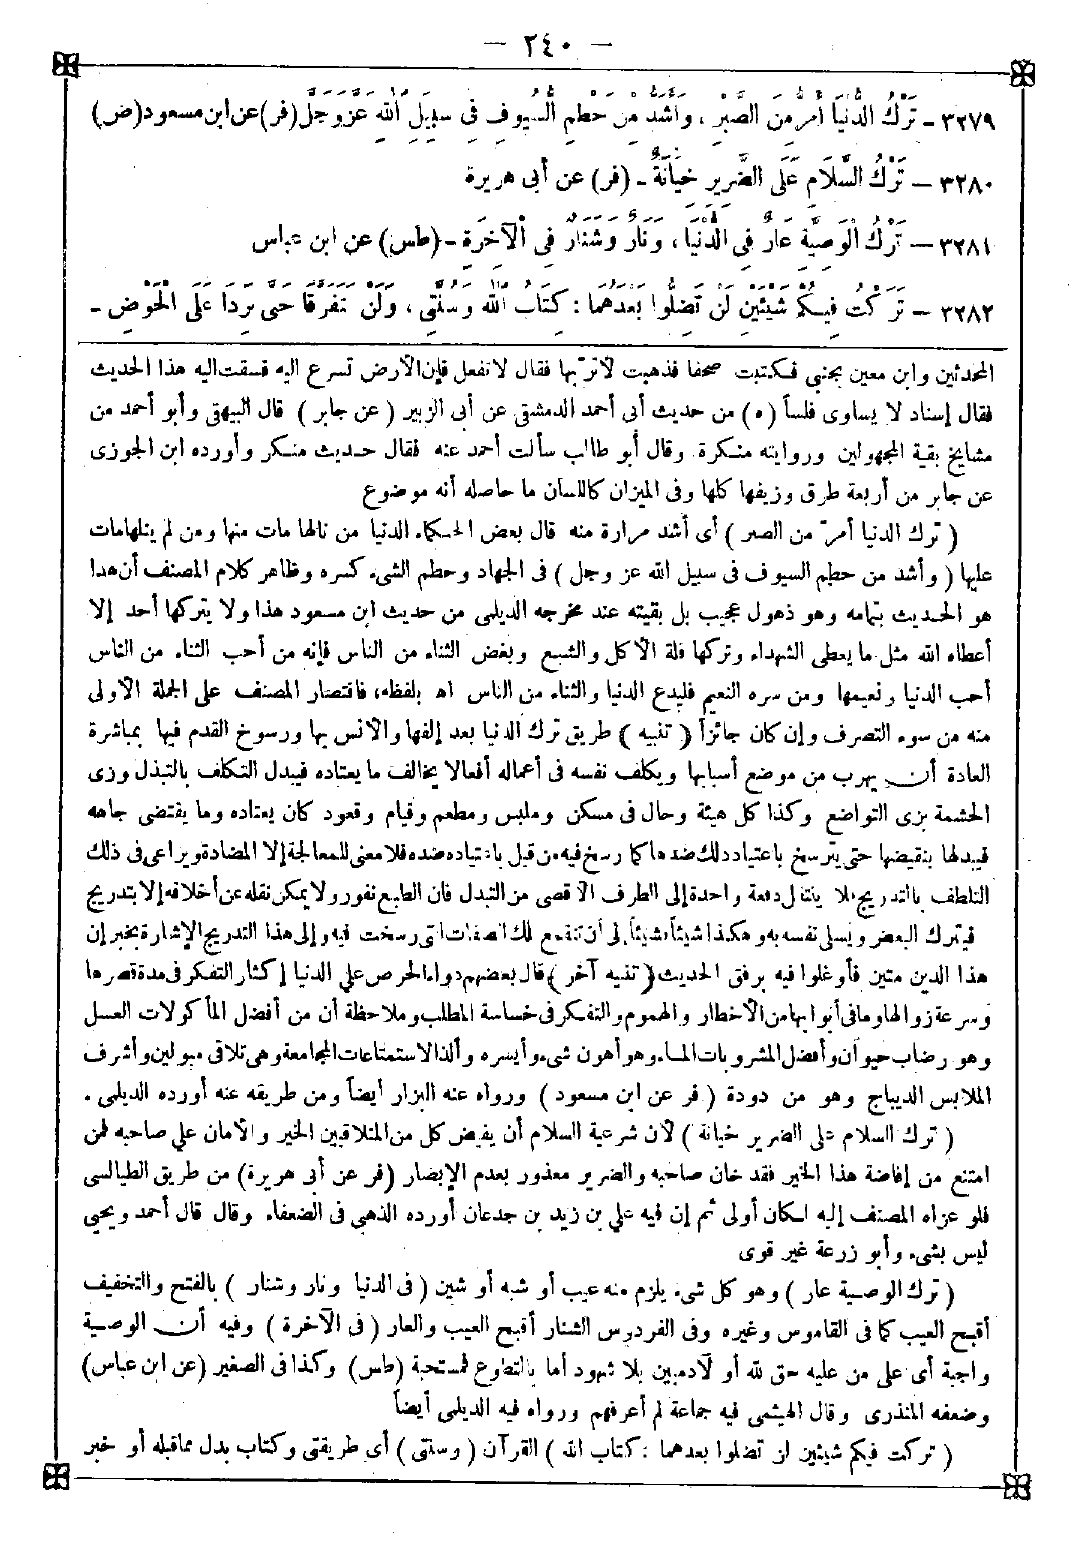 — ٢٤٠ —
٣٢٧٩ - تَرْكُ الدُّنْيَا أَمَرُّ مِنَ الصَّبْرِ، وَأَشَدُّ مِنْ حَطْمِ السُّيُوفِ فِى سَبِيلِ اللهِ عَزَّ وَجَلَّ (فر) عن ابن مسعود (ض)
٣٢٨٠ - تَرْكُ السَّلَامِ عَلَى الضَّرِيرِ خِيَانَةٌ - (فر) عن أبى هريرة
٣٢٨١ - تَرْكُ الْوَصِيَّةِ عَارٌ فِى الدُّنْيَا، وَنَارٌ وَشَنَارٌ فِى الْآخِرَةِ - (طس) عن ابن عباس
٣٢٨٢ - تَرَكْتُ فِيكُمْ شَيْئَيْنِ لَنْ تَضِلُّوا بَعْدَهُمَا : كِتَابَ اللهِ وَسُنَّتِى، وَلَنْ يَتَفَرَّقَا حَتَّى يَرِدَا عَلَىَّ الْحَوْضِ -
المحدثين وابن معين بجنبى فكتبت صحفا فذهبت لأتربها فقال لا تفعل فإن الأرض تسرع اليه فسقت اليه هذا الحديث
فقال إسناد لا يساوى فلساً (ه) من حديث أبى أحمد الدمشقى عن أبى الزبير ( عن جابر ) قال البيهقى وأبو أحمد من
مشايخ بقية المجهولين وروايته منكرة وقال أبو طالب سألت أحمد عنه فقال حديث منكر وأورده ابن الجوزى
عن جابر من أربعة طرق وزيفها كلها وفى الميزان كاللسان ما حاصله أنه موضوع
( ترك الدنيا أمرّ من الصبر ) أى أشد مرارة منه قال بعض الحكماء الدنيا من نالها مات منها ومن لم ينلها مات
عليها ( وأشد من حطم السيوف فى سبيل الله عز وجل ) فى الجهاد وحطم الشىء كسره وظاهر كلام المصنف أن هذا
هو الحديث بتمامه وهو ذهول عجيب بل بقيته عند مخرجه الديلى من حديث ابن مسعود هذا ولا يتركها أحد إلا
أعطاه الله مثل ما يعطى الشهداء وتركها قلة الأكل والشبع وبغض الثناء من الناس فإنه من أحب الثناء من الناس
أحب الدنيا ونعيمها ومن سره النعيم فليدع الدنيا والثناء من الناس اه بلفظه، فاقتصار المصنف على الجملة الأولى
منه من سوء التصرف وإن كان جائزاً ( تنبيه ) طريق ترك الدنيا بعد إلفها والأنس بها ورسوخ القدم فيها بمباشرة
العادة أن يهرب من موضع أسبابها ويكلف نفسه فى أعماله أفعالا يخالف ما يعتاده فيبدل التكلف بالتبذل وزى
الحشمة بزى التواضع وكذا كل هيئة وحال فى مسكن وملبس ومطعم وقيام وقعود كان يعتاده وما يقتضى جاهه
فيبدلها بنقيضها حتى يترسخ باعتياد ذلك ضد ما كما رسخ فيه من قبل باعتياده ضده فلا معنى للمعالجة إلا المضادة ويراعى فى ذلك
التلطف بالتدريج فلا ينتقل دفعة واحدة إلى الطرف الأقصى من التبدل فان الطبع نفور ولا يمكن نقله عن أخلاقه إلا بتدريج
فيترك البعض ويسلى نفسه به وهكذا شيئاً شيئاً إلى أن تنقمع تلك الصفات التى رسخت فيه وإلى هذا التدريج الإشارة بخبر إن
هذا الدين متين فأوغلوا فيه برفق الحديث ( تنبيه آخر ) قال بعضهم دواء الحرص على الدنيا إكثار التفكر فى مدة قصرها
وسرعة زوالها وما فى أبوابها من الأخطار والهموم والتفكر فى خساسة المطلب وملاحظة أن من أفضل المأكولات العسل
وهو رضاب حيوان وأفضل المشروبات الماء وهو أهون شىء وأيسره وألذ الاستمتاعات المجامعة وهى تلاقى مبولين وأشرف
الملابس الديباج وهو من دودة ( فر عن ابن مسعود ) ورواه عنه البزار أيضاً ومن طريقه عنه أورده الديلمى .
( ترك السلام على الضرير خيانة ) لأن شرعية السلام أن يفيض كل من المتلاقيين الخير والأمان على صاحبه فمن
امتنع من إفاضة هذا الخير فقد خان صاحبه والضرير معذور بعدم الإبصار (فر عن أبى هريرة) من طريق الطيالسى
فلو عزاه المصنف إليه لكان أولى ثم إن فيه على بن زيد بن جدعان أورده الذهبى فى الضعفاء وقال قال أحمد ويحيى
ليس بشىء وأبو زرعة غير قوى
( ترك الوصية عار ) وهو كل شىء يلزم منه عيب أو شبه أو شين ( فى الدنيا ونار وشنار ) بالفتح والتخفيف
أقبح العيب كما فى القاموس وغيره وفى الفردوس الشنار أقبح العيب والعار ( فى الآخرة ) وفيه أن الوصية
واجبة أى على من عليه حق لله أو لآدميين بلا شهود أما بالتطوع فمستحبة (طس) وكذا فى الصغير (عن ابن عباس)
وضعفه المنذرى وقال الهيثمى فيه جماعة لم أعرفهم ورواه فيه الديلى أيضاً
( تركت فيكم شيئين لن تضلوا بعدهما : كتاب الله ) القرآن ( وسنتى ) أى طريقتى وكتاب بدل مما قبله أو خبر